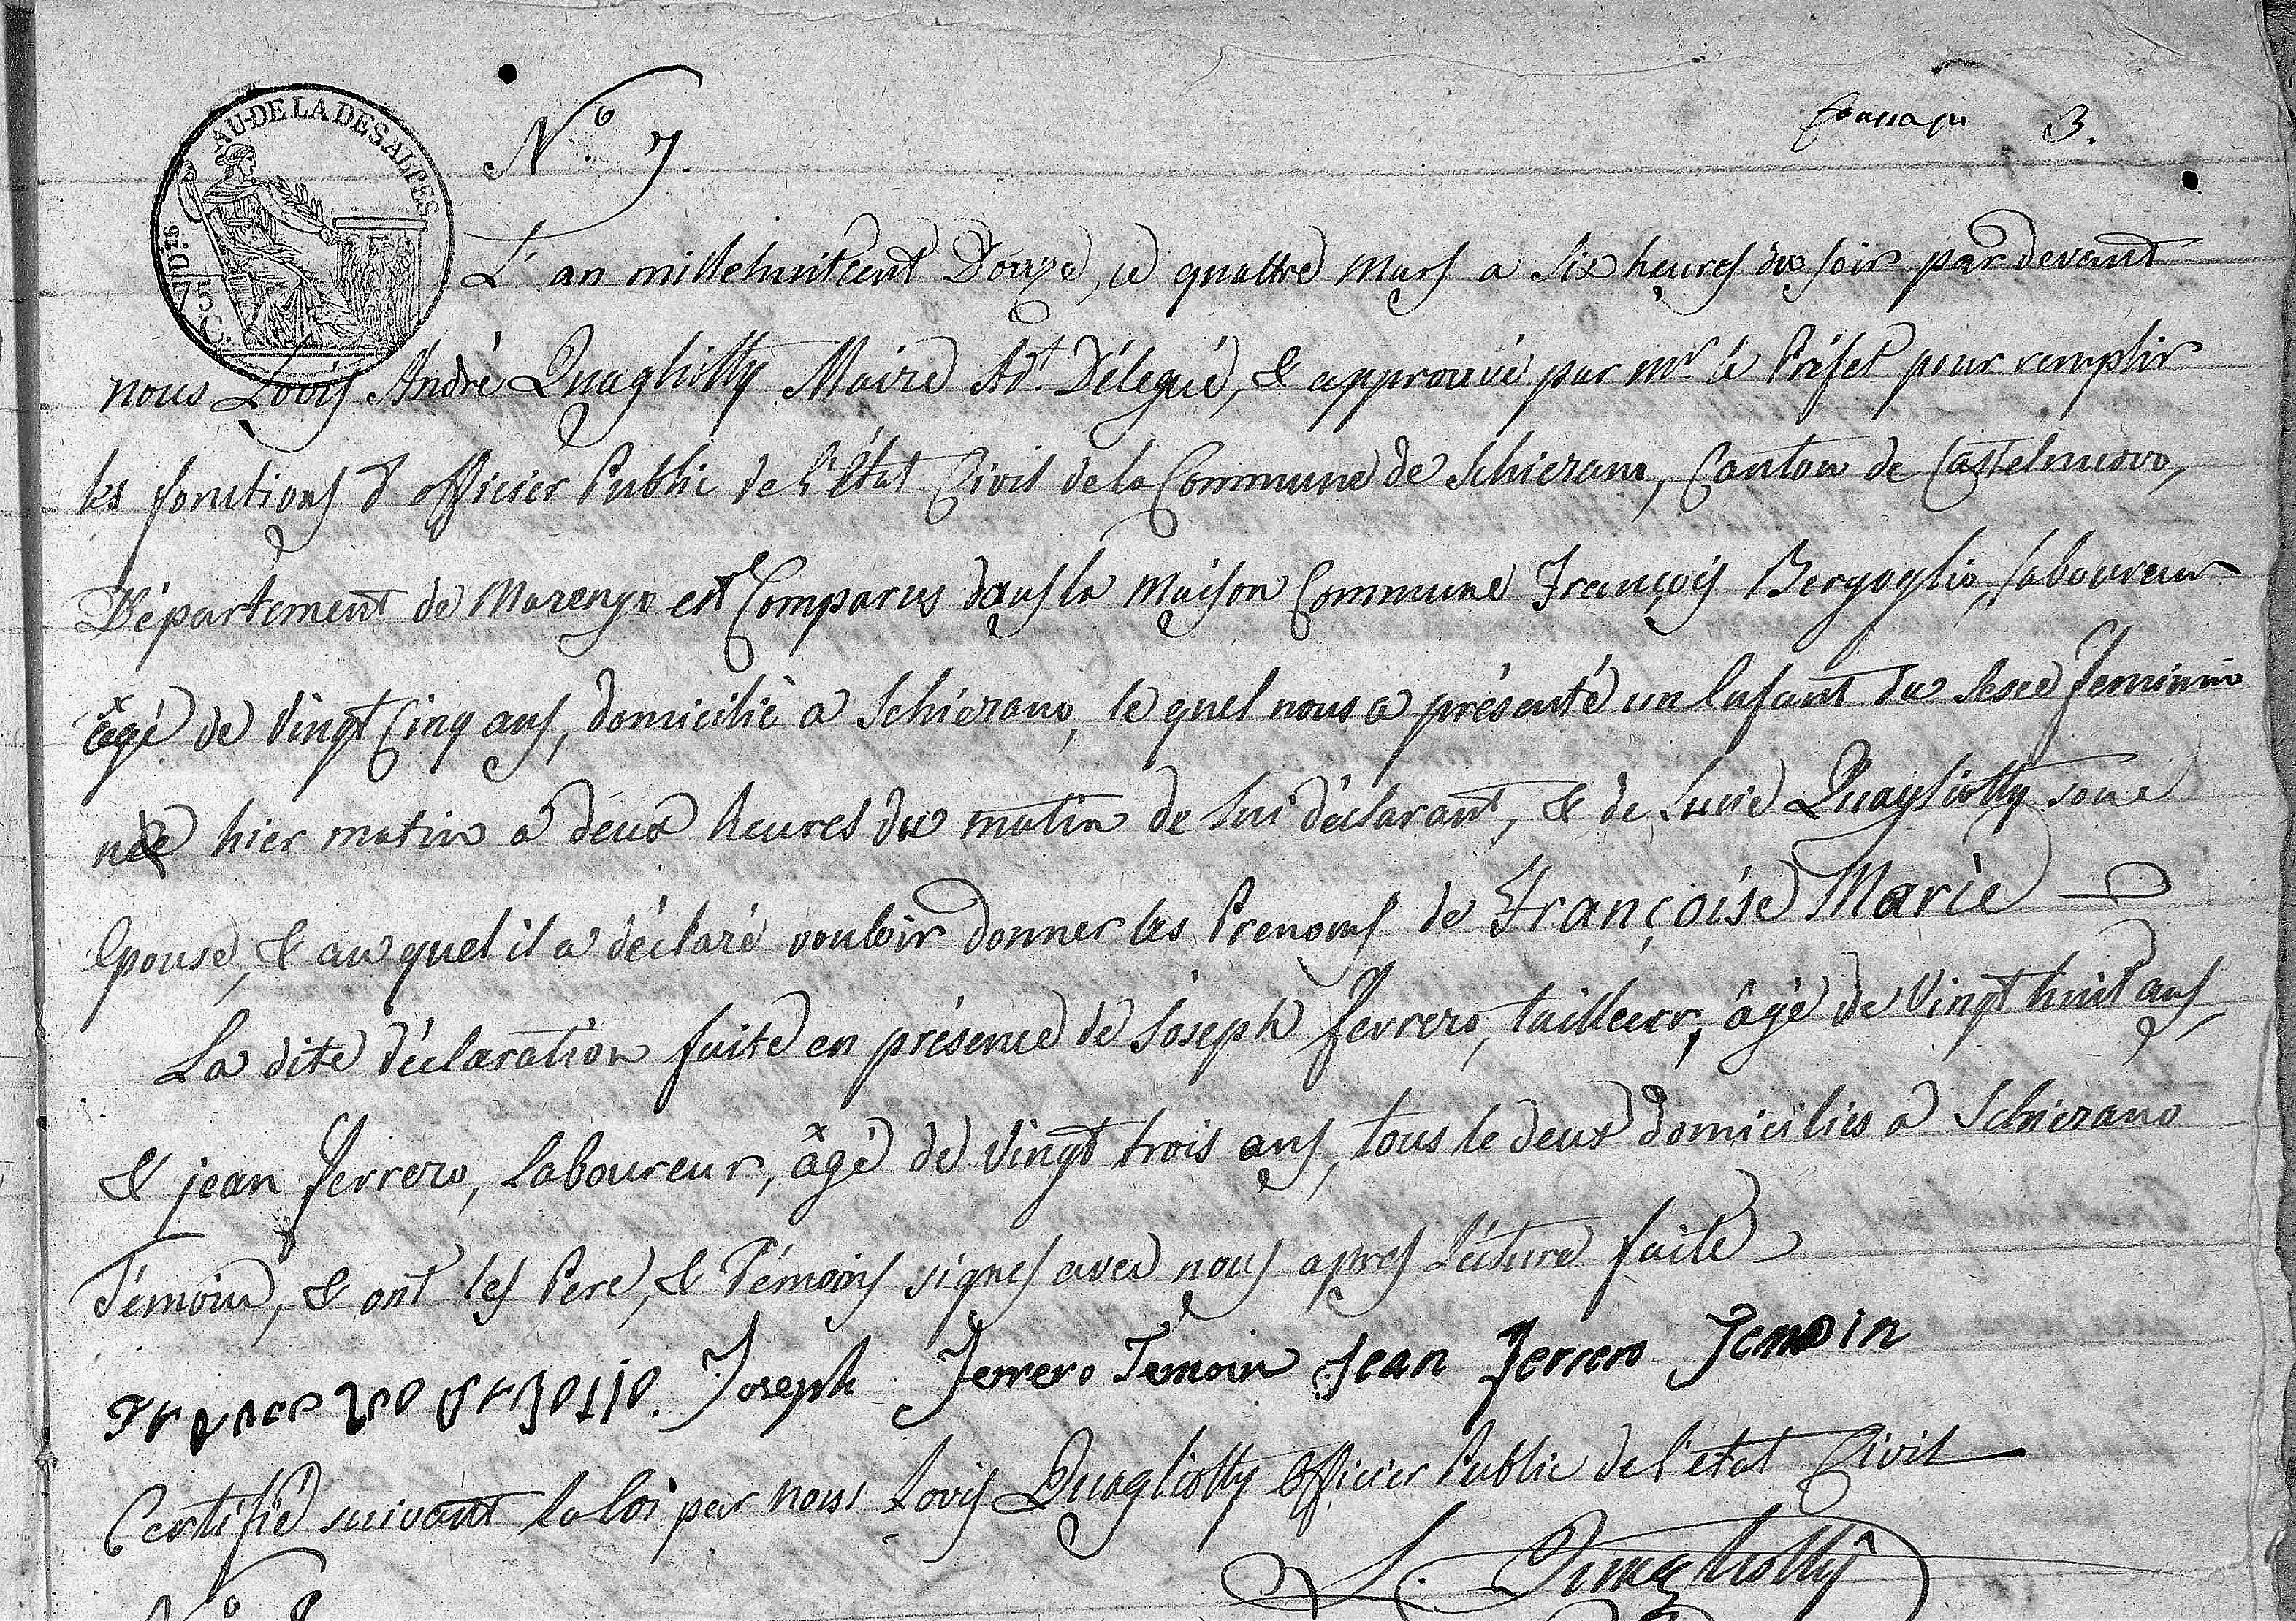 AU-DE LA DES ALPES
Dts
75
C.
No. 7.
3.
L'an millehuitcent Douze, le quattre Mars a Six heures du soir pardevant
nous Lovis André Quagliotty Maire Adt. Délegué, & approuvé par mr. le Préfet pour remplir
les fonctions d'officier Public de l'état Civil de la Commune de Schierano, Canton de Castelnuovo,
Département de Marengo est Comparus dans la Maison Commune François Bergoglio, laboureur
âgé de Vingt Cinq ans, domicilié a Schierano, le quel nous a présenté un Enfant du Sexe feminin
née hier matin a deux heures du matin de lui déclarant, & de Lucie Quagliotty sone
Epouse, & au quel il a déclaré vouloir donner les Prenoms de Françoise Marie
La dite déclaration faite en présence de Joseph Ferrero, tailleur, âgé de Vingt huit ans,
& jean Ferrero, Laboureur, âgé de Vingt trois ans, tous le deux domiciliés a Schierano
Témoin, & ont les Pere, & Témoins signes avec nous apres Lécture faite
Joseph Ferrero Témoin Jean Ferrero Temoin
Certifié suivant la loi par nous Lovis Quagliotty Officier Public de l'état Civil
L. Quagliotty
No. 8